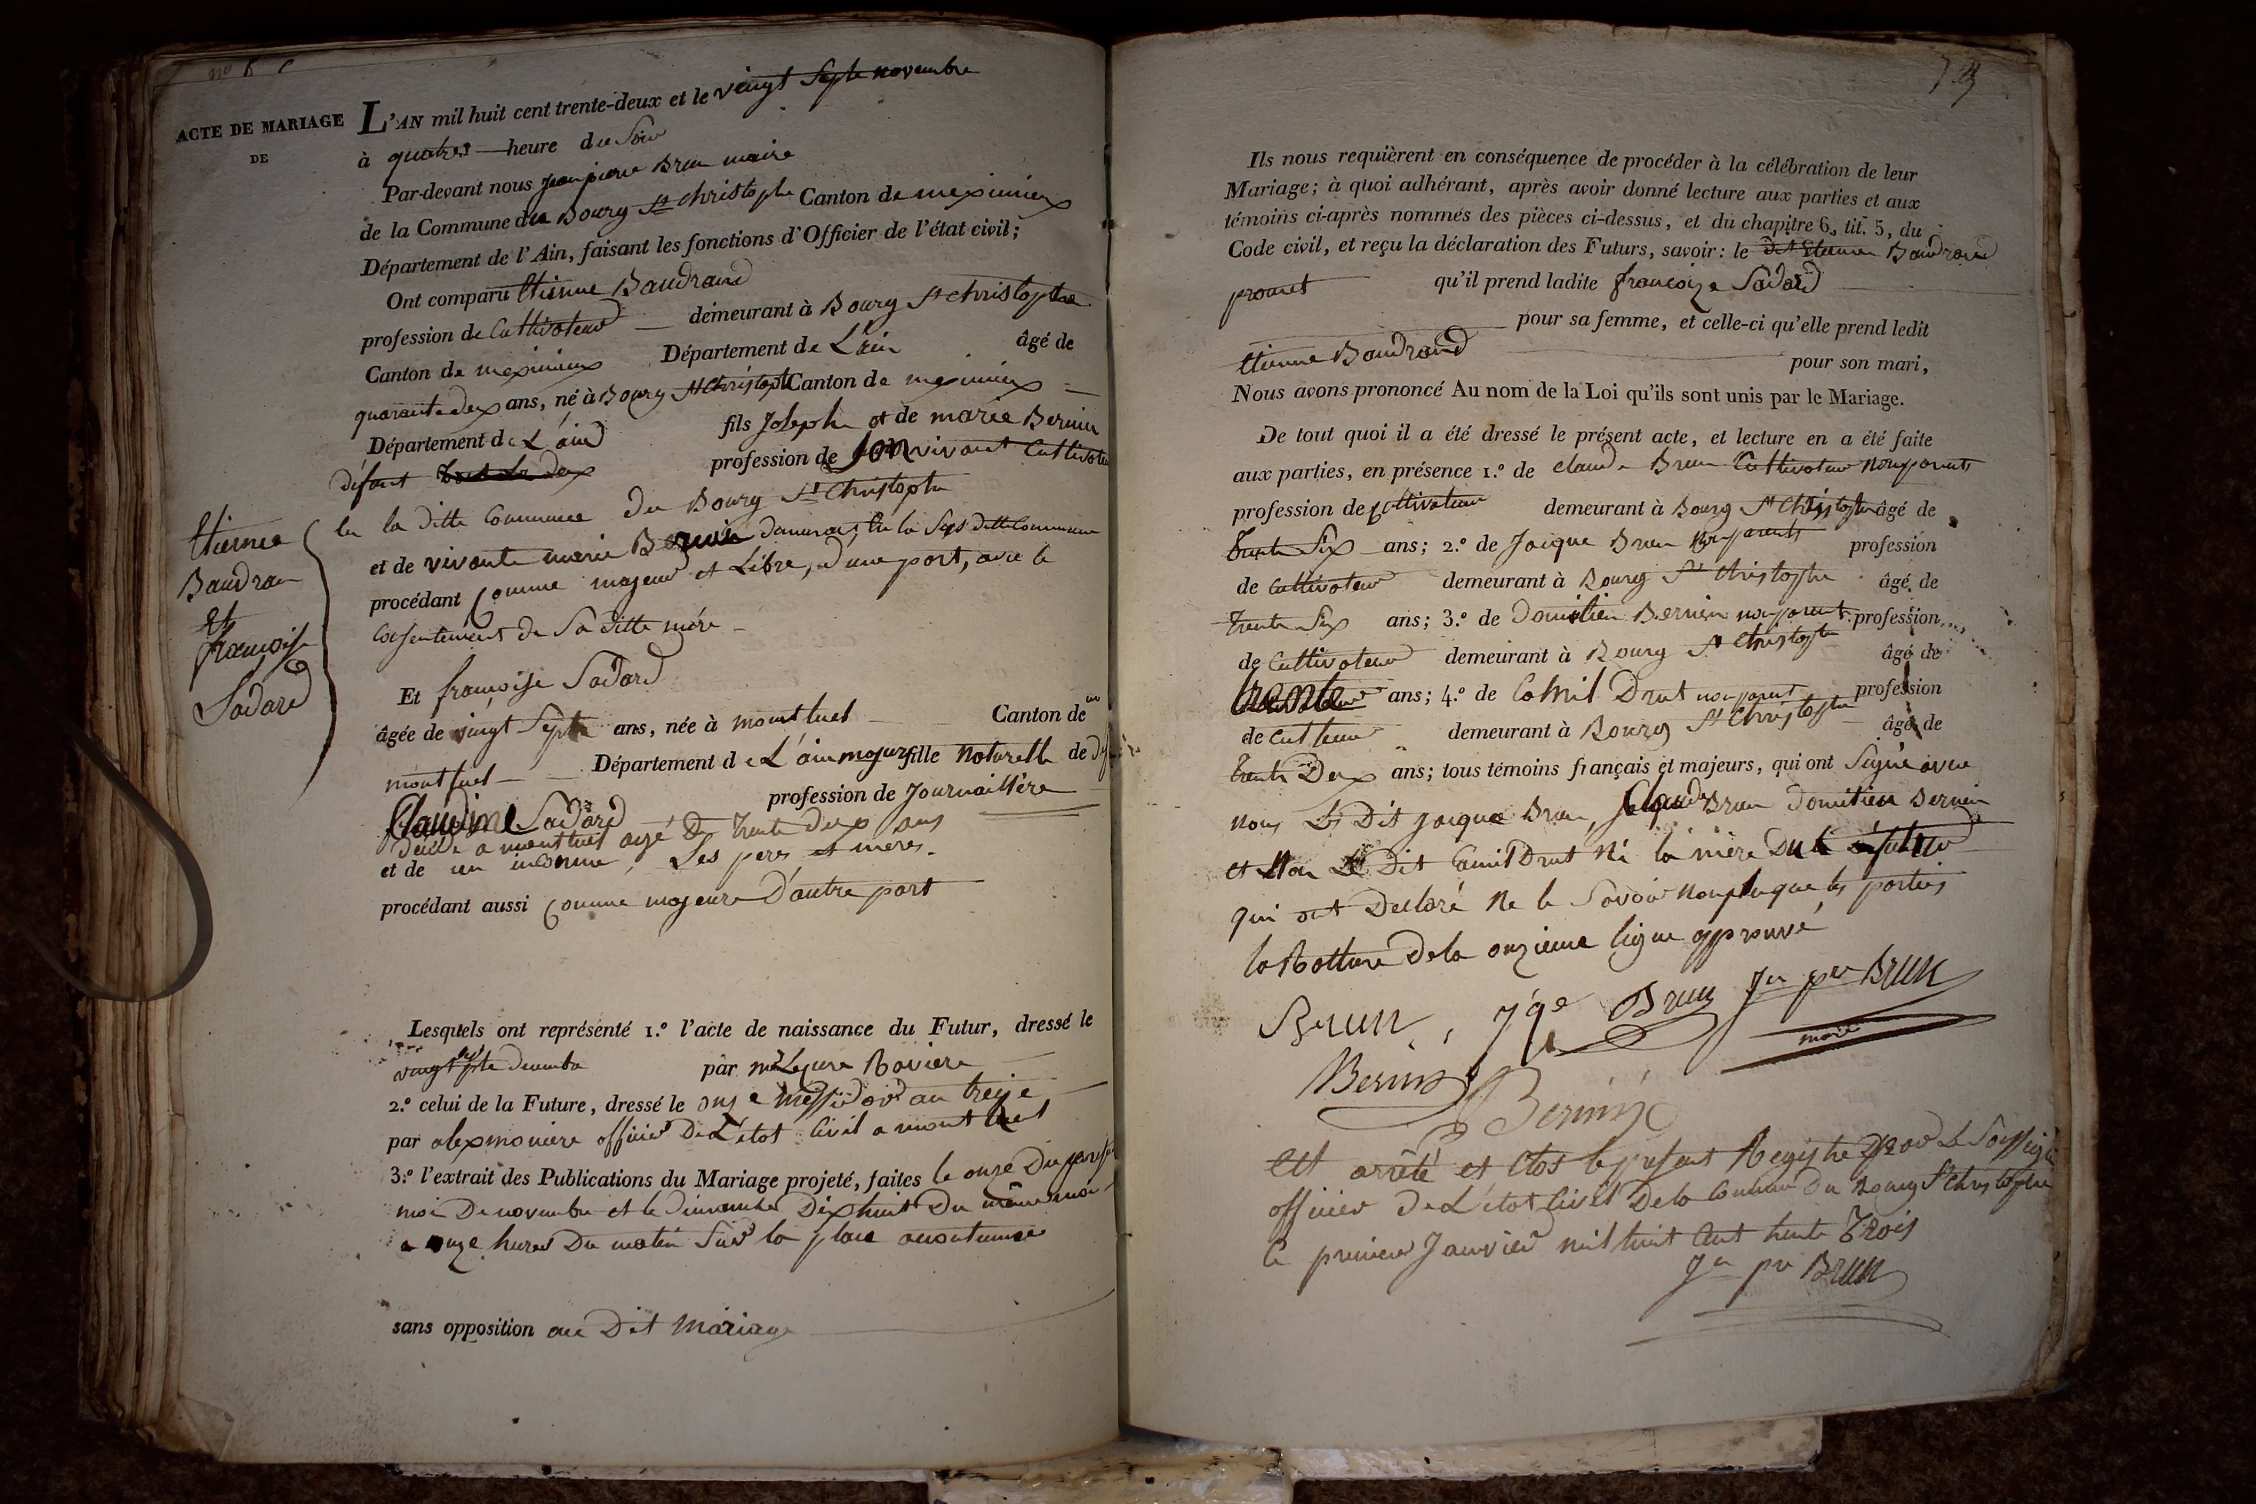 ACTE DE MARIAGE
DE
Etienne
Baudran
et
françoise
Sadard
L'AN mil huit cent trente-deux et le vingt Septe novembre
à quatres heure du Soir
Par-devant nous Jean pierre Brun maire
de la Commune du Bourg St Christophe Canton de meximieux
Département de l'Ain, faisant les fonctions d'Officier de l'état civil;
Ont comparu Etienne Baudrand
profession de Cultivateur demeurant à Bourg St Christophe
Canton de meximieux Département de L'ain âgé de
quarante deux ans, né à Bourg St Christophe Canton de meximieux
Département de L'ain fils Joseph et de marie Bernin
défunt profession de Son vivant Cultivateur
en la ditte Commune du Bourg St Christophe
et de vivante marie Bernin demeurant en la Sus ditte Commune
procédant Comme majeur et Libre, d'une part, avec le
Consentement de Sa ditte mère
Et françoise Sadard
âgée de vingt Septe ans, née à montluel Canton de
montluel Département de L'ain majeur fille Naturelle de
Claudine Sadard profession de Journaillère
décédé a montluel agé De trente deux ans
et de un inconnu, Ses peres et meres
procédant aussi Comme majeure D'autre part
Lesquels ont représenté 1.º l'acte de naissance du Futur, dressé le
vingt septe decembre par Rovière
2.º celui de la Future, dressé le onze messidor an treize
par alex moniere officier De L'état Civil a montluel
3.º l'extrait des Publications du Mariage projeté, faites le onze Du present
moi De novembre et le dimanche Dix huit Du même moi
a onze heures Du matin Sur la place acoutumée
sans opposition au Dit mariage
Ils nous requièrent en conséquence de procéder à la célébration de leur
Mariage; à quoi adhérant, après avoir donné lecture aux parties et aux
témoins ci-après nommés des pièces ci-dessus, et du chapitre 6, tit. 5, du
Code civil, et reçu la déclaration des Futurs, savoir: le Dt Etienne Baudrand
promet qu'il prend ladite françoize Sadard
pour sa femme, et celle-ci qu'elle prend ledit
Etienne Baudrand pour son mari,
Nous avons prononcé Au nom de la Loi qu'ils sont unis par le Mariage.
De tout quoi il a été dressé le présent acte, et lecture en a été faite
aux parties, en présence 1.º de claude Brun Cultivateur Nonparents
profession de Cultivateur demeurant à Bourg St Christophe âgé de
trente Six ans; 2.º de Jacque Brun Nonparents profession
de Cultivateur demeurant à Bourg St Christophe âgé de
trente Six ans; 3.º de Domitien Bernin nonparent profession
de Cultivateur demeurant à Bourg St Christophe âgé de
trente ans; 4.º de Camil Drut nonparent profession
de Cultteur demeurant à Bourg St Christophe âgé de
trente Deux ans; tous témoins français et majeurs, qui ont Signé avec
nous Le Dit Jacque Brun, Claude Brun Domitien Bernin
et Non Le Dit Camil Drut Ni la mère Du futur
qui ont Declaré Ne le Savoir Nonplusque les parties
la Rotture Dela onzieme ligne approuvé
Brun, Jqe Brun Jn pre BRUN
maire
Bernin
Bernin
Est arrêté et Clos le présent Registre par Le Soussigné
officier De L'état Civil De la Commune Du Bourg St Christophe
le premier Janvier mil huit Cent trente Trois
Jn pre BRUN